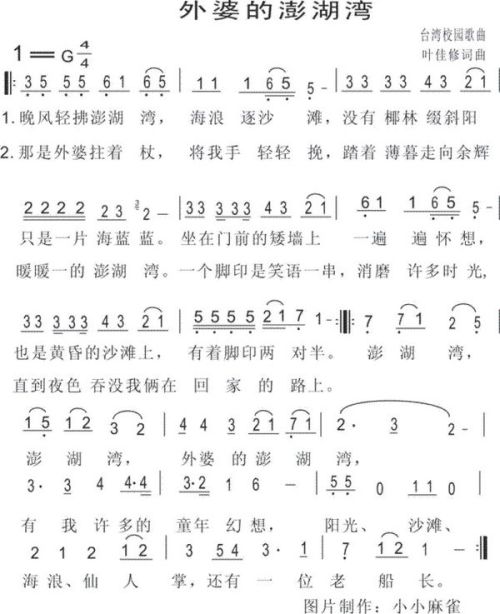 外婆的澎湖湾
台湾校园歌曲
1 = G 4/4
叶佳修词曲
35 55 61 65 | 11 165 5 - | 33 433 43 21 |
1. 晚风轻拂澎湖 湾, 海浪 逐沙 滩, 没有 椰林 缀斜阳
2. 那是外婆拄着 杖, 将我手 轻轻 挽, 踏着 薄暮走向余辉
2222 23 2 - | 33 333 43 21 | 61 165 5 - |
只是一片 海蓝蓝。坐在门前的矮墙上 一遍 遍 怀 想,
暖暖一的 澎湖 湾。一个脚印是笑语一串, 消磨 许多时 光,
33 333 43 21 | 5555 5217 1 - :|: 7 71 2 5 |
也是黄昏的沙滩上, 有着脚印两 对半。 澎 湖 湾,
直到夜色 吞没我俩在 回 家 的 路上。
15 12 32 | 44 3 21 71 | 2· 3 2 - |
澎 湖 湾, 外婆 的 澎 湖 湾,
3· 3 4 4·4 | 3·2 1 6 - | 55 0 110 |
有 我 许 多的 童年 幻 想, 阳光、 沙滩、
2 1 2 12 | 3 54 3· 3 | 5 5 2 2 1 - :|
海 浪、仙 人 掌, 还有 一 位 老 船 长。
图片制作: 小小麻雀